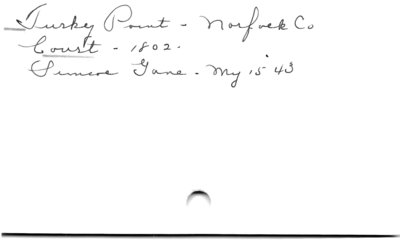 Turkey Point - Norfolk Co
Court - 1802.
Simcoe Gane. My 15 43